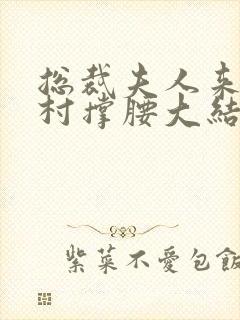 总裁夫人来
村撑腰大结
紫菜不爱包飯